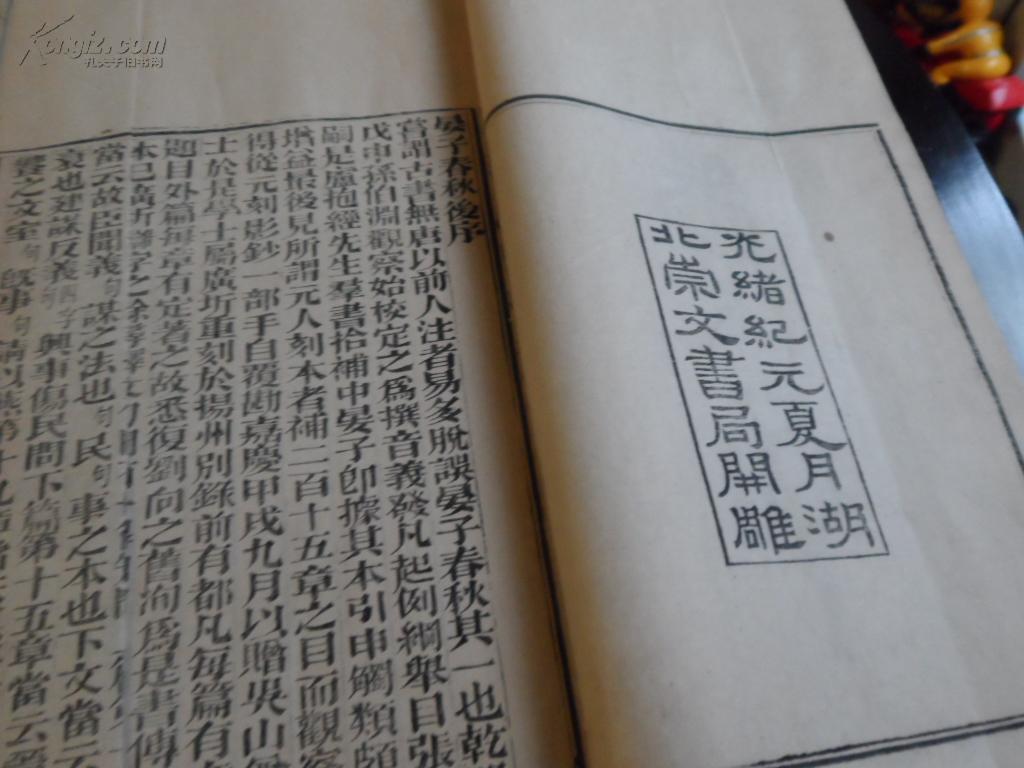 Kongfz.com
孔夫子旧书网
光緒紀元夏月湖
北崇文書局開雕
晏子春秋後序
嘗謂古書無唐以前人注者易多脫誤晏子春秋其一也乾
戊申孫伯淵觀察始校定之爲撰音義發凡起例綱舉目張
嗣是盧抱經先生羣書拾補中晏子卽據其本引申觸類頗
增益最後見所謂元人刻本者補二百十五章之目而觀察
得從元刻影鈔一部手自覆勘嘉慶甲戌九月以贈吳山
士於是學士屬廣圻重刻於揚州別錄前有都凡每篇有
題目外篇每章有定著之故悉復劉向之舊洵爲是書傳
本已廣圻
當云故臣聞義句謀之法也句民句事之本也下文當云
哀也建謀反義興事傷民問下篇第十五章當云